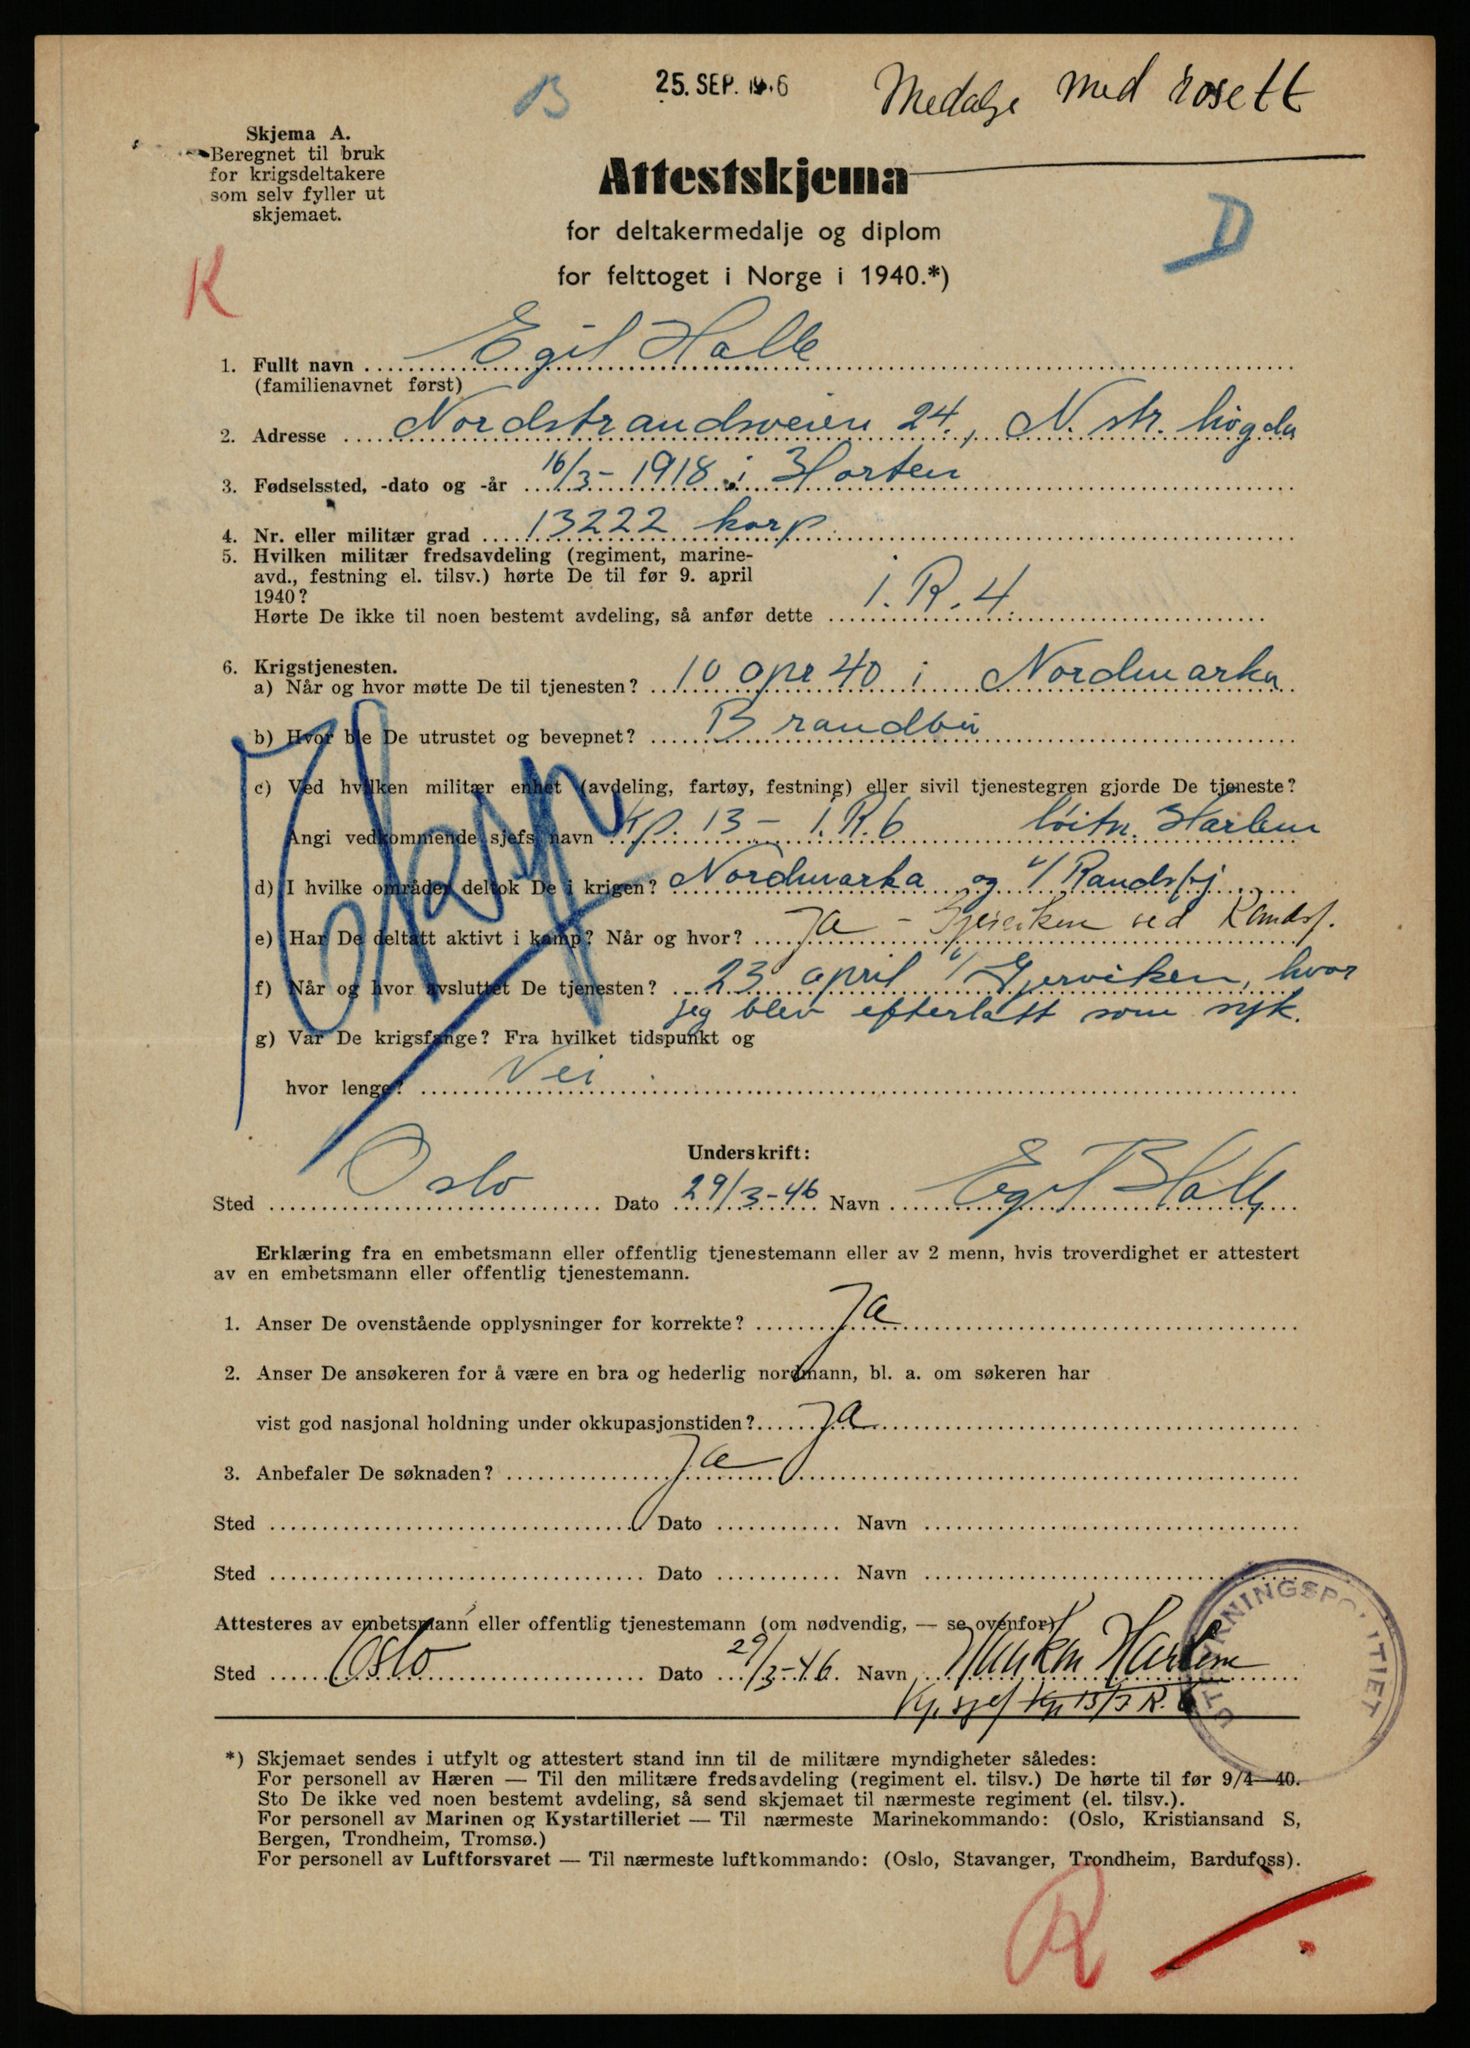 B
25. SEP. 1946
Medalje med rosett
Skjema A.
Beregnet til bruk
for krigsdeltakere
som selv fyller ut
skjemaet.
Attestskjema
for deltakermedalje og diplom
for felttoget i Norge i 1940.*)
D
K
1. Fullt navn Egil Halle
(familienavnet først)
2. Adresse Nordstrandsveien 24., N. str. høgda
3. Fødselssted, -dato og -år 16/3-1918 i Horten
4. Nr. eller militær grad 13222 korp
5. Hvilken militær fredsavdeling (regiment, marine-
avd., festning el. tilsv.) hørte De til før 9. april
1940?
Hørte De ikke til noen bestemt avdeling, så anfør dette I.R.4.
6. Krigstjenesten.
a) Når og hvor møtte De til tjenesten? 10 apr 40 i Nordmarka
b) Hvor ble De utrustet og bevepnet? Brandbu
c) Ved hvilken militær enhet (avdeling, fartøy, festning) eller sivil tjenestegren gjorde De tjeneste?
Angi vedkommende sjefs navn Kp. 13 - I.R.6 løitn. Harlem
d) I hvilke områder deltok De i krigen? Nordmarka og v/Randsfj.
e) Har De deltatt aktivt i kamp? Når og hvor? Ja - ved Randsf.
f) Når og hvor avsluttet De tjenesten? 23 april v/Gjerviken, hvor
jeg blev efterlatt som syk.
g) Var De krigsfange? Fra hvilket tidspunkt og
hvor lenge? Nei
Underskrift:
Sted Oslo Dato 29/3-46 Navn Egil B Halle
Erklæring fra en embetsmann eller offentlig tjenestemann eller av 2 menn, hvis troverdighet er attestert
av en embetsmann eller offentlig tjenestemann.
1. Anser De ovenstående opplysninger for korrekte? Ja
2. Anser De ansøkeren for å være en bra og hederlig nordmann, bl. a. om søkeren har
vist god nasjonal holdning under okkupasjonstiden? Ja
3. Anbefaler De søknaden? Ja
Sted Dato Navn
Sted Dato Navn
Attesteres av embetsmann eller offentlig tjenestemann (om nødvendig, — se ovenfor)
Sted Oslo Dato 29/3-46 Navn Haakon Harlem
Kp.sjef Kp 13/I R. 6
UTRYKNINGSPOLITIET
*) Skjemaet sendes i utfylt og attestert stand inn til de militære myndigheter således:
For personell av Hæren — Til den militære fredsavdeling (regiment el. tilsv.) De hørte til før 9/4—40.
Sto De ikke ved noen bestemt avdeling, så send skjemaet til nærmeste regiment (el. tilsv.).
For personell av Marinen og Kystartilleriet — Til nærmeste Marinekommando: (Oslo, Kristiansand S,
Bergen, Trondheim, Tromsø.)
For personell av Luftforsvaret — Til nærmeste luftkommando: (Oslo, Stavanger, Trondheim, Bardufoss).
R